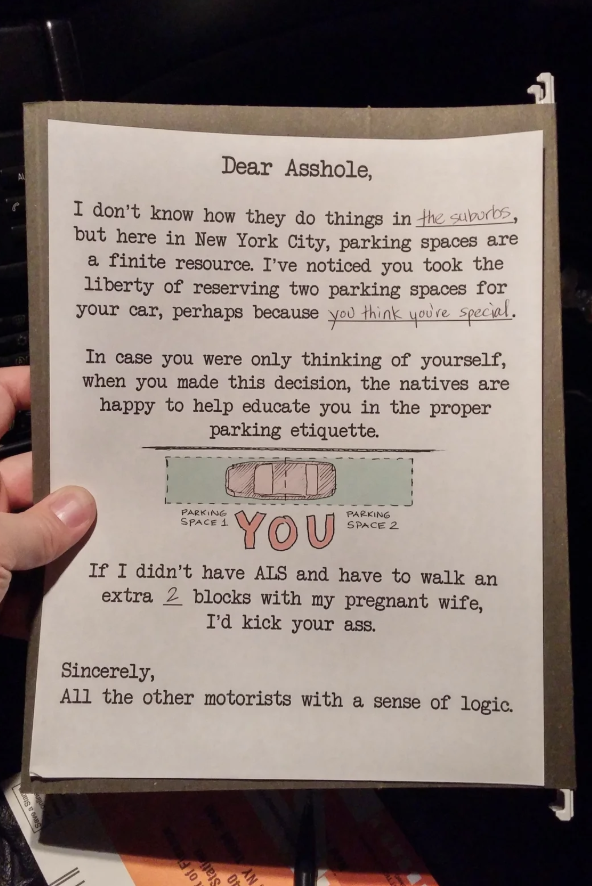 Dear Asshole,
I don't know how they do things in the suburbs,
but here in New York City, parking spaces are
a finite resource. I've noticed you took the
liberty of reserving two parking spaces for
your car, perhaps because you think you're special.
In case you were only thinking of yourself,
when you made this decision, the natives are
happy to help educate you in the proper
parking etiquette.
PARKING
SPACE 1
YOU
PARKING
SPACE 2
If I didn't have ALS and have to walk an
extra 2 blocks with my pregnant wife,
I'd kick your ass.
Sincerely,
All the other motorists with a sense of logic.